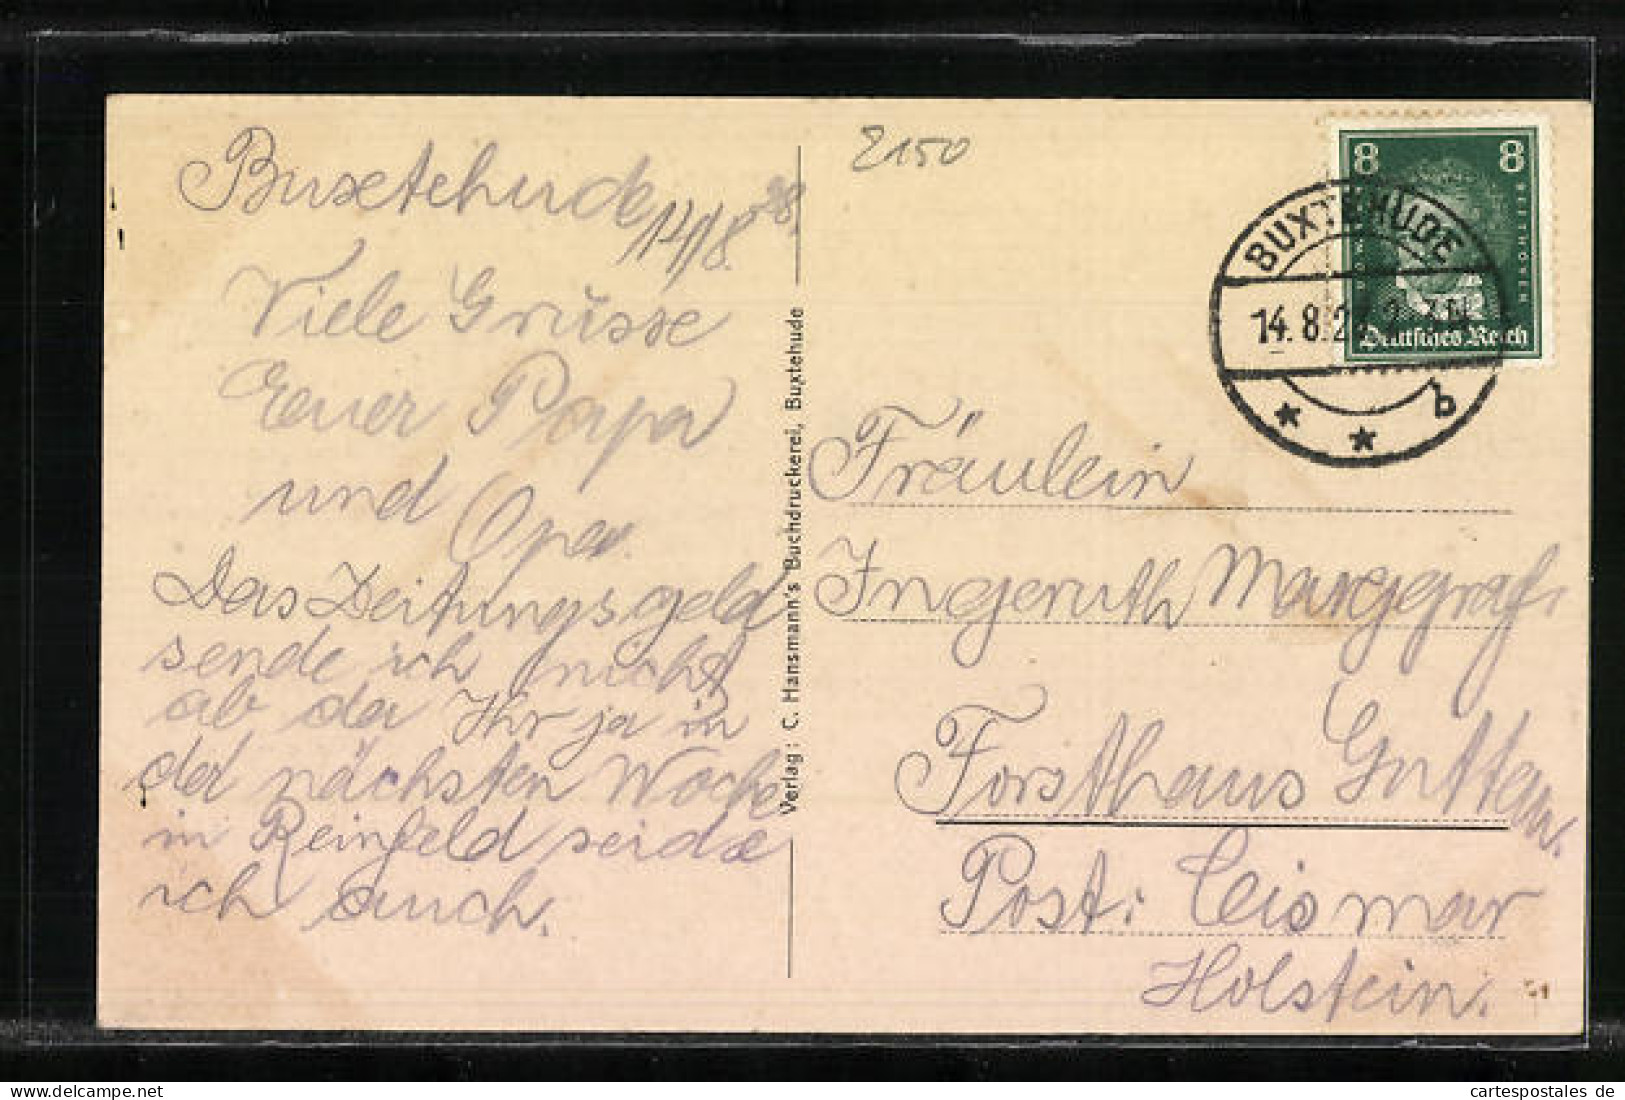 Buxtehude 14/8. 28.
Viele Grüsse
Euer Papa
und Opa.
Das Zeitungsgeld
sende ich nicht
ab da Ihr ja in
der nächsten Woche
in Reinfeld seid
ich auch.
Verlag: C. Hansmann's Buchdruckerei, Buxtehude
2150
8 8
BEETHOVEN
Deutsches Reich
BUXTEHUDE
14. 8. 2
b
Fräulein
Ingeruth Marggraf,
Forsthaus Guttau.
Post: Cismar
Holstein.
cartespostales de